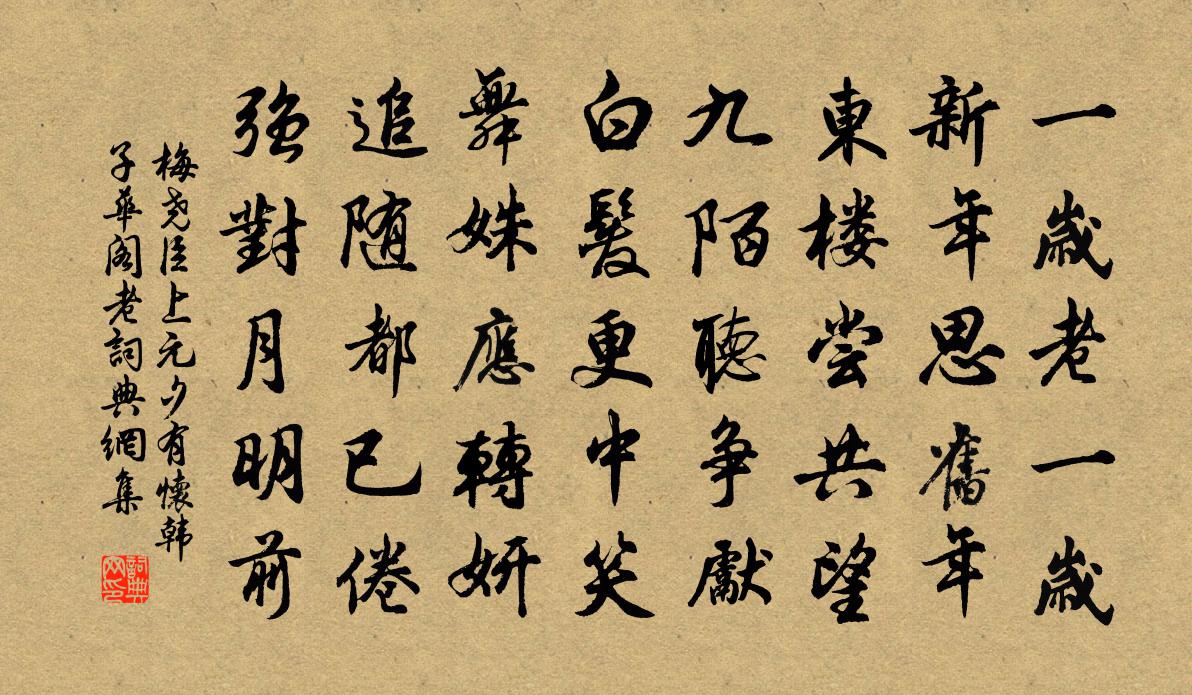 一歲老一歲
新年思舊年
東楼嘗共望
九陌聽争獻
白髮更中笑
舞姝應轉妍
追随都已倦
強對月明前
梅尧臣上元夕有懷韩
子華阁老詞典網集
詞典网印